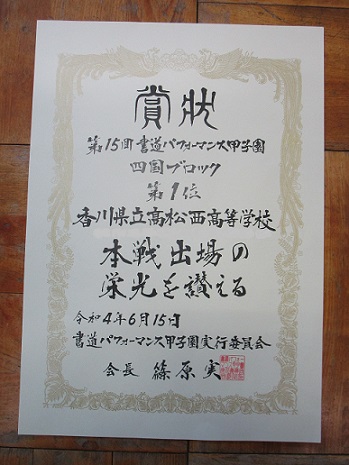 賞状
第15回書道パフォーマンス甲子園
四国ブロック
第1位
香川県立高松西高等学校
本戦出場の
栄光を讃える
令和4年6月15日
書道パフォーマンス甲子園実行委員会
会長 篠原実